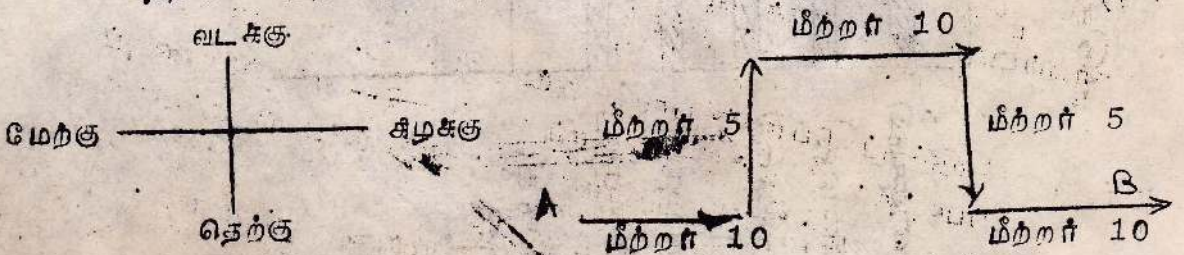 வடக்கு
மேற்கு
கிழக்கு
தெற்கு
மீற்றர் 10
மீற்றர் 5
மீற்றர் 5
A
B
மீற்றர் 10
மீற்றர் 10